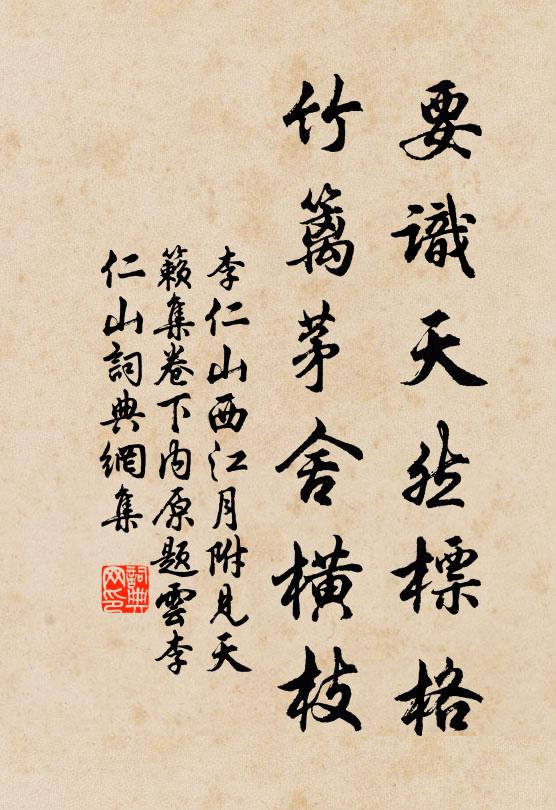 要識天然標格
竹篱茅舍橫枝
李仁山西江月附見天
籟集卷下内原題雲李
仁山詞典網集
詞典网印